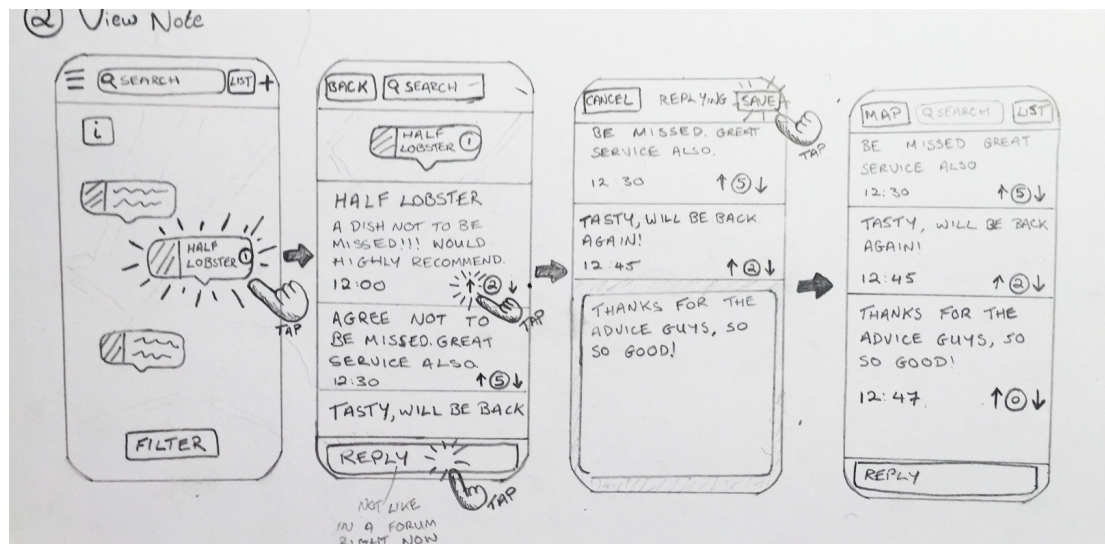 ② View Note
SEARCH LIST +
i
HALF
LOBSTER 1
TAP
FILTER
BACK SEARCH
HALF
LOBSTER 1
HALF LOBSTER
A DISH NOT TO BE
MISSED!!! WOULD
HIGHLY RECOMMEND.
12:00 ↑ 2 ↓
TAP
AGREE NOT TO
BE MISSED. GREAT
SERVICE ALSO.
12:30 ↑ 5 ↓
TASTY, WILL BE BACK
REPLY
TAP
NOT LIKE
IN A FORUM
RIGHT NOW
CANCEL REPLYING SAVE
TAP
BE MISSED. GREAT
SERVICE ALSO.
12:30 ↑ 5 ↓
TASTY, WILL BE BACK
AGAIN!
12:45 ↑ 2 ↓
THANKS FOR THE
ADVICE GUYS, SO
SO GOOD!
MAP SEARCH LIST
BE MISSED GREAT
SERVICE ALSO
12:30 ↑ 5 ↓
TASTY, WILL BE BACK
AGAIN!
12:45 ↑ 2 ↓
THANKS FOR THE
ADVICE GUYS, SO
SO GOOD!
12:47 ↑ 0 ↓
REPLY